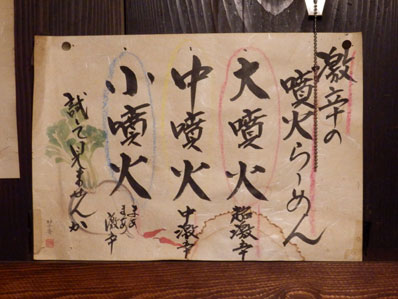 激辛の
噴火らーめん
大噴火
超激辛
中噴火
中激辛
小噴火
まあまあ
激辛
試て見ませんか